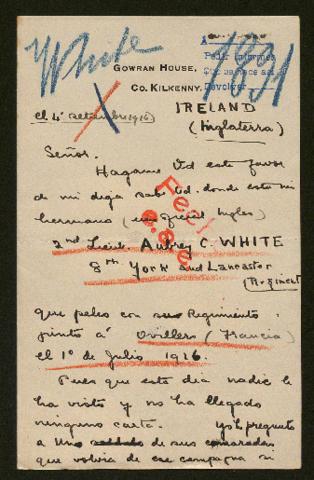 White
1891
Pedir informes
Devolver
GOWRAN HOUSE,
CO. KILKENNY.
IRELAND
(Inglaterra)
el 4 setiembre 1916
Señor.
Hagame Vd este favor
de mi deja saber Vd. donde esta mi
hermano (un oficial Ingles)
2nd Lieut. Aubrey C. WHITE
8th York and Lancaster
(Regiment
que peleo con su Regimiento
junto á Ovillers (Francia)
el 1º de Julio 1916.
Pues que este dia nadie le
ha visto y no ha llegado
ninguno carta. Yo le pregunto
a uno soldado de sus camaradas
que volvia de ese campaña si